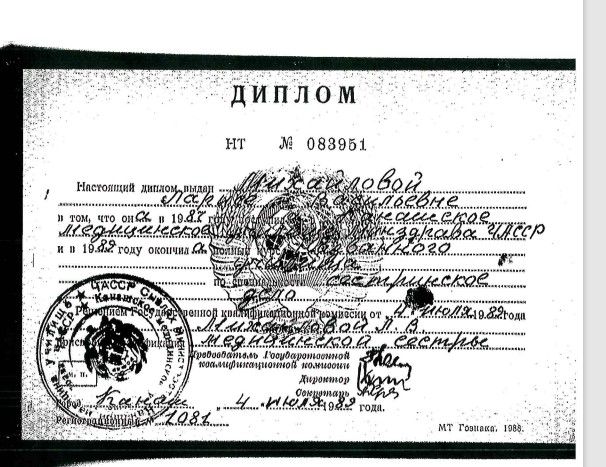 ДИПЛОМ
НТ № 083951
Настоящий диплом выдан Михайловой
Ларисе Васильевне
в том, что она в 1987 году Канашское
медицинское Минздрава ЧАССР
и в 1989 году окончила полный
училища
по специальности сестринское
дело
Решением Государственной квалификационной комиссии от 4 июля 1989 года
Михайловой Л. В.
медицинской сестры
Председатель Государственной
квалификационной комиссии
Директор
М. П.
Секретарь
Город Канаш, 4 июля 1989 года.
Регистрационный № 1081
МТ Гознака. 1988.